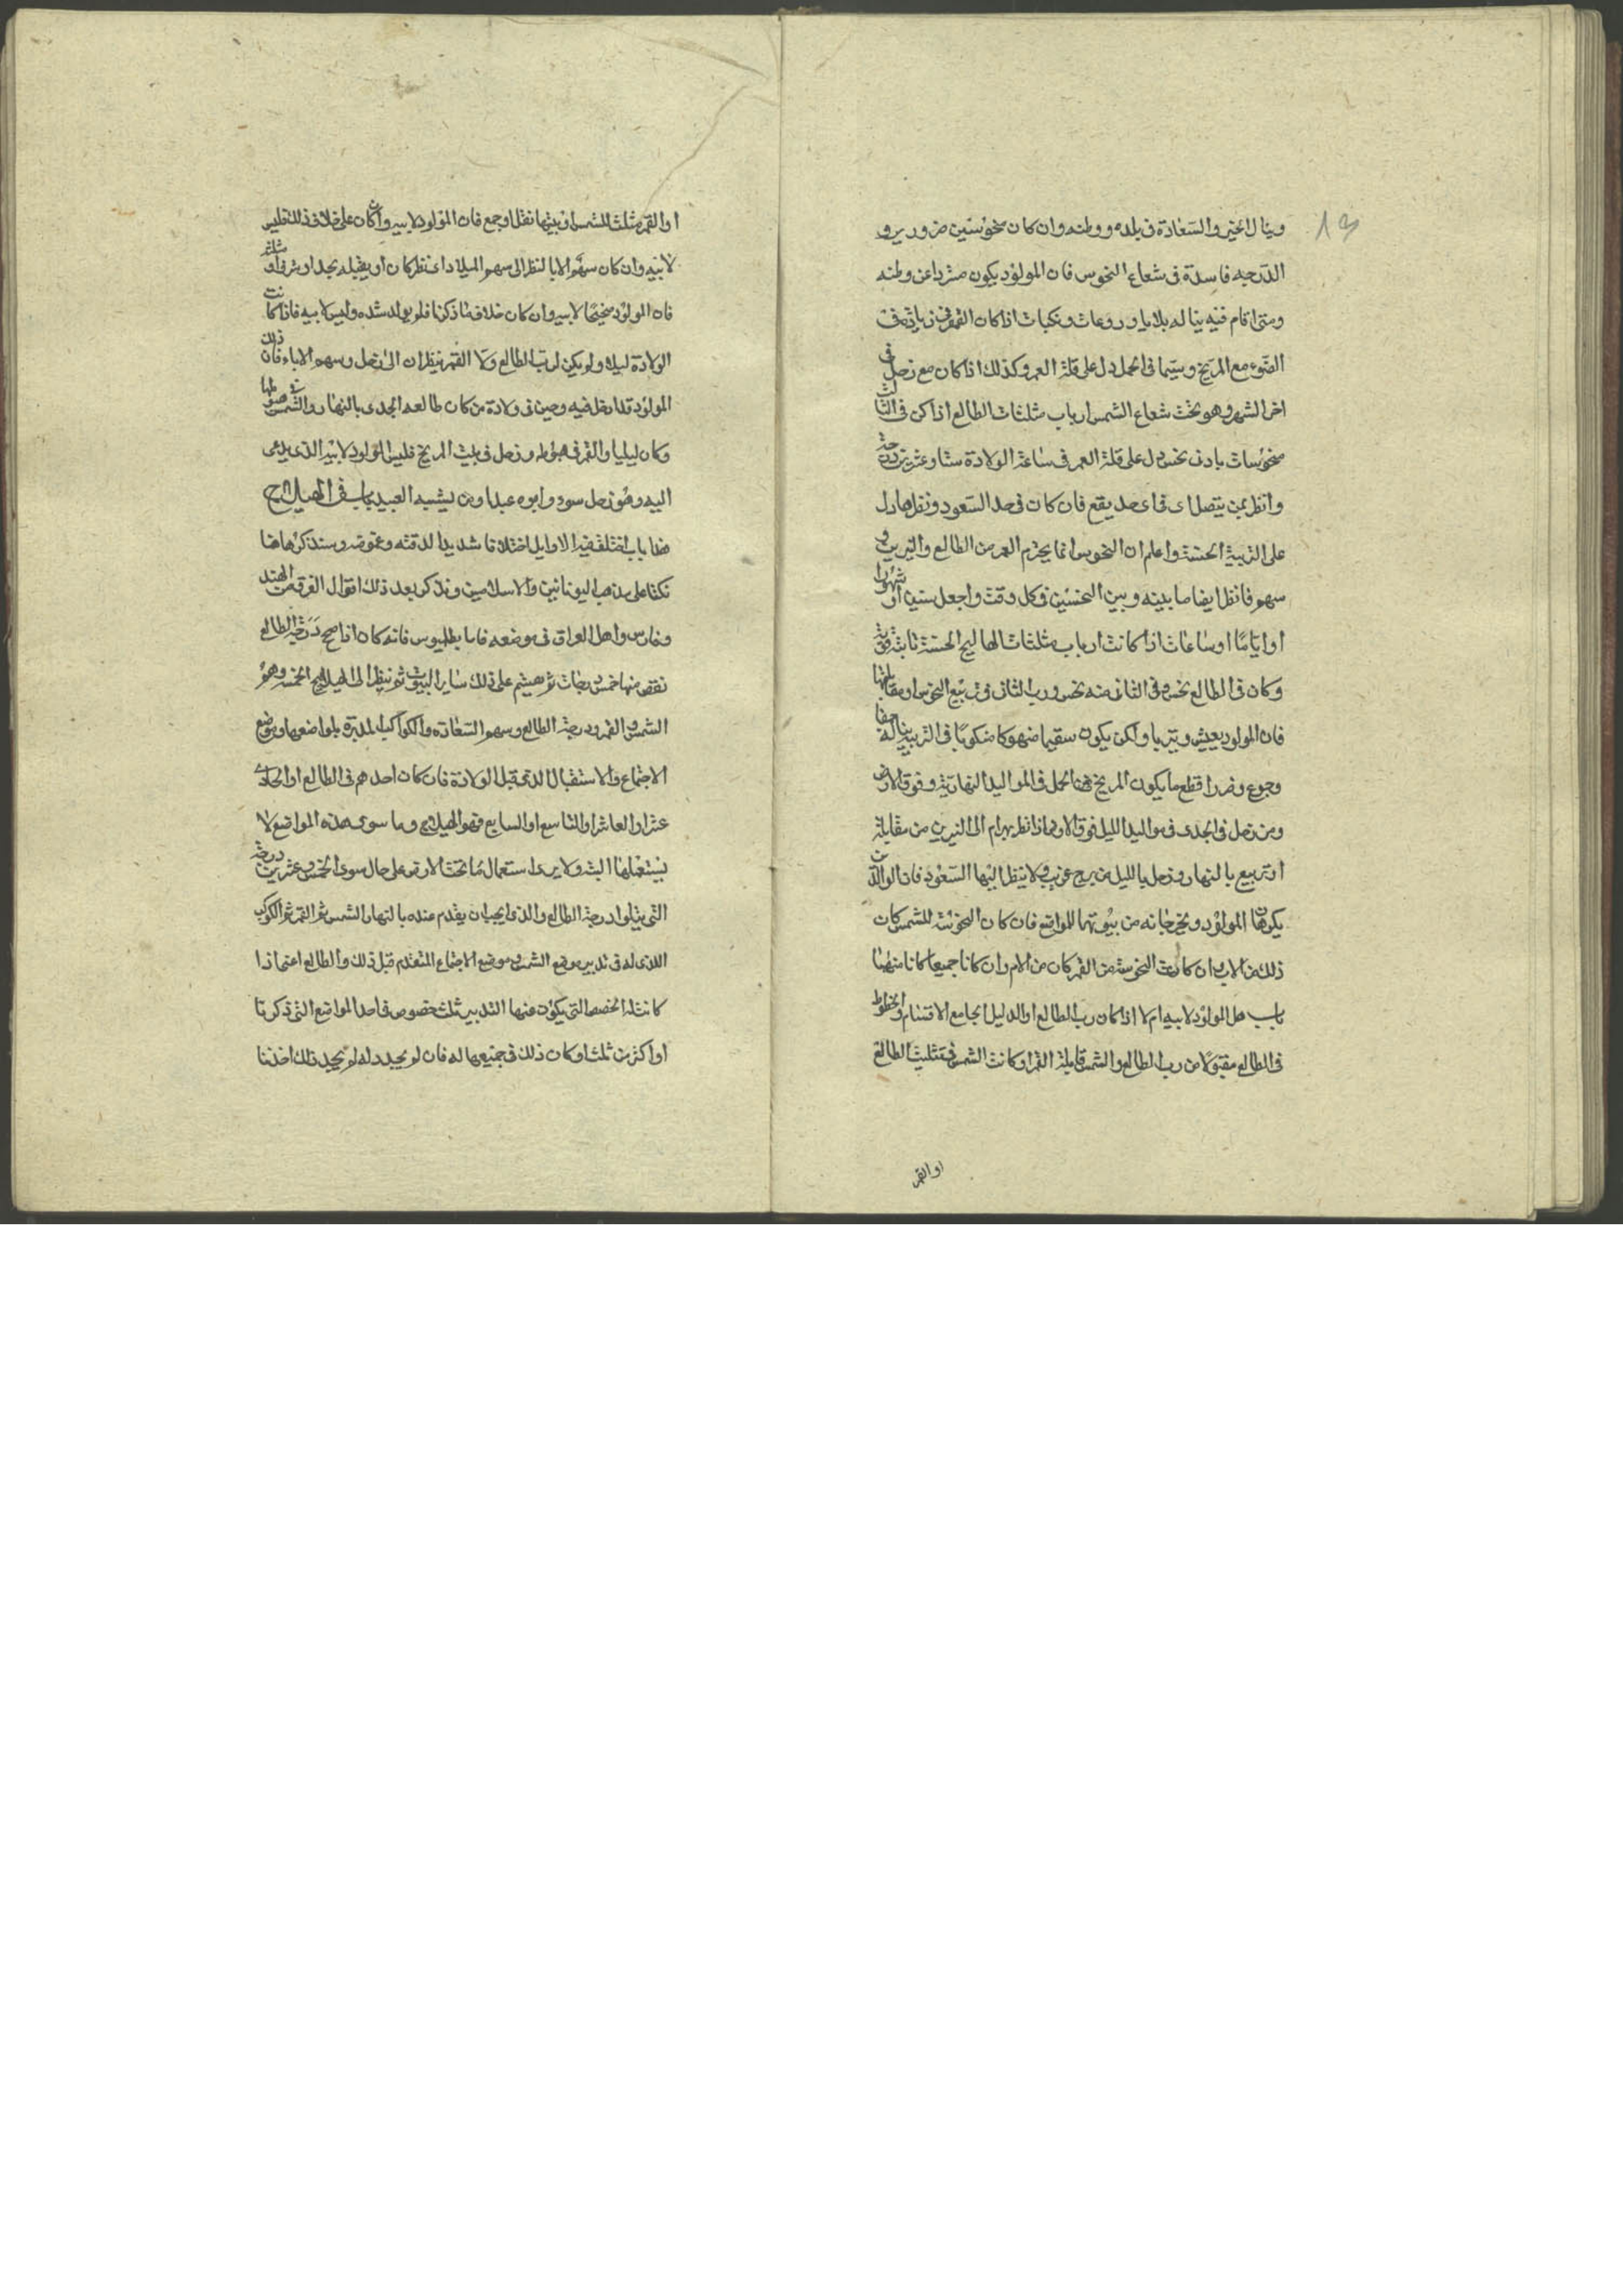 ١٣
وينال الخير والسعادة في بلده ووطنه وان كان منحوستين ضروريرو
الدرجه فاسدة في شعاع النحوس فان المولود يكون مشردا عن وطنه
ومتى اقام فيه يناله بلايا وروعات ونكبات اذا كان القمر في زيادة في
الضوء مع المريخ وسيما في الحمل دل على قلة العمر وكذلك اذا كان مع زحل في
اخر الشهر وهو تحت شعاع الشمس ارباب مثلثات الطالع اذا كن في الثالث
منحوسات بادنى نحس دل على قلة العمر في ساعة الولادة ستا وعشرين درجة
وانظر بمن يتصل اى في اى حد يقع فان كان في حد السعود ونظرها دل
على التربية الحسنة واعلم ان النحوس انما يحترم العمر من الطالع والنيرين و
سهم فانظر ايضا ما بينه وبين النحسين في كل وقت واجعل سنين او شهورا
او اياما او ساعات اذا كانت ارباب مثلثات الهاليج الحسنة ثابتة قوية
وكان في الطالع نحس وفي الثاني منه نحس ورب الثاني في تربيع النحس او مقابلتها
فان المولود يعيش ويتربا ولكن يكون سقيما ضهوكا منكوبا في التربية يناله جفا
وجوع وضررا قطع ما يكون المريخ هنا الحمل في المواليد النهارية وفوق الارض
ومن زحل في الجدى في مواليد الليل فوق الارض اذا نظر بهرام الى النيرين من مقابلة
او تربيع بالنهار وزحل بالليل من برج غريب ولا ينظر اليها السعود فان الوالدين
يكرهان المولود ويخرجانه من بيوتهما للمواضع فان كان النحوسة للشمس كان
ذلك من الاب وان كانت النحوسة من القمر كان من الام وان كانا جميعا كانا منهما
باب هل المولود لابيه ام لا اذا كان رب الطالع او الدليل الجامع الاقتسام والحظوظ
في الطالع مقبولا من رب الطالع والشمس قابلة القمر او كانت الشمس في تثليث الطالع
او القمر
او القمر مثلث للشمس او بينهما نقل او جمع فان المولود لابيه وان كان على خلاف ذلك فليس
لابيه وان كان سهم الابا لنظر الى سهم الميلاد اى نظر كان او يقبله بحد او شرف او مثلثة
فان المولود صحيحا لابيه وان كان خلاف ما ذكرنا فلم يولد شده وليس لابيه فاذا كانت
الولادة ليلا ولم يكن لرب الطالع ولا القمر ينظران الى زحل وسهم الاباء فان ذلك
المولود قد دخل فيه وحين في ولادة من كان طالعه الجدى بالنهار والشمس في هبوطها
وكان ليليا والقمر في هبوطه وزحل في بيت المريخ فليس المولود لابيه الذى يدعى
اليه وهو زحل سود وابوه عبدا ومن يشبه العبيد باب في الهيلاج
هذا باب اختلف فيه الاوايل اختلافا شديدا لدقته وغموضه وسنذكرها هنا
نكتا على مذهب اليونانيين والاسلاميين ونذكر بعد ذلك اقوال الفرقه من الهند
وفارس واهل العراق في موضعه فاما بطليوس فانه كان اذا صحح درجة الطالع
نقص منها خمس درجات ثم هيثم على ذلك ساير البيوت ثم ينظر الى الهيلاج الخمسه وهو
الشمس والقمر ودرجة الطالع وسهم السعاده والكواكب المدبرة بلواضعها وموضع
الاجتماع والاستقبال الذى قبل الولادة فان كان احدهم في الطالع او الحادى
عشر او العاشر او التاسع او السابع فهو الهيلاج وما سوى هذه المواضع لا
يستعملها البتة ولا يرى استعمال ما تحت الارض على حال سوى الخمس وعشرين درجة
التي يتلوا درجة الطالع والذى يجب ان يقدم عنده بالنهار الشمس ثم القمر ثم الكوكب
الذى له في تدبير موضع الشمس وموضع الاجتماع المتقدم قبل ذلك والطالع اعتمادا
كانت له الحصص التي يكون فيها التدبير ثلث خصوص في احد المواضع التي ذكرنا
او اكثر من ثلث او كان ذلك في جميعها له فان لم يجد له لم يجد ذلك اخذنا